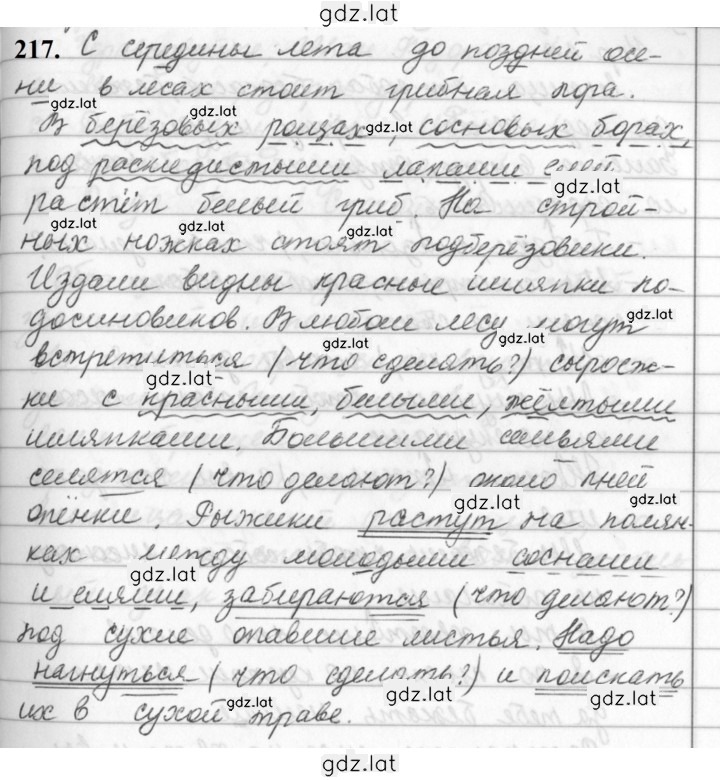 gdz.lat
217. С середины лета до поздней осе-
ни в лесах стоит грибная пора.
gdz.lat
gdz.lat
В берёзовых рощах, gdz.lat сосновых борах,
под раскидистыми лапами елей
gdz.lat
растёт белый гриб. На строй-
gdz.lat gdz.lat
ных ножках стоят подберёзовики.
Издали видны красные шляпки по-
gdz.lat
досиновиков. В любом лесу могут
gdz.lat gdz.lat
встретиться (что сделать?) сыроеж-
gdz.lat
ки с красными, белыми, жёлтыми
шляпками. Большими семьями
селятся (что делают?) около пней
gdz.lat
опёнки. Рыжики растут на полян-
ках между молодыми соснами
gdz.lat
и елями, забираются (что делают?)
под сухие опавшие листья. Надо
нагнуться (что сделать?) и поискать
gdz.lat gdz.lat gdz.lat
их в сухой траве.
gdz.lat